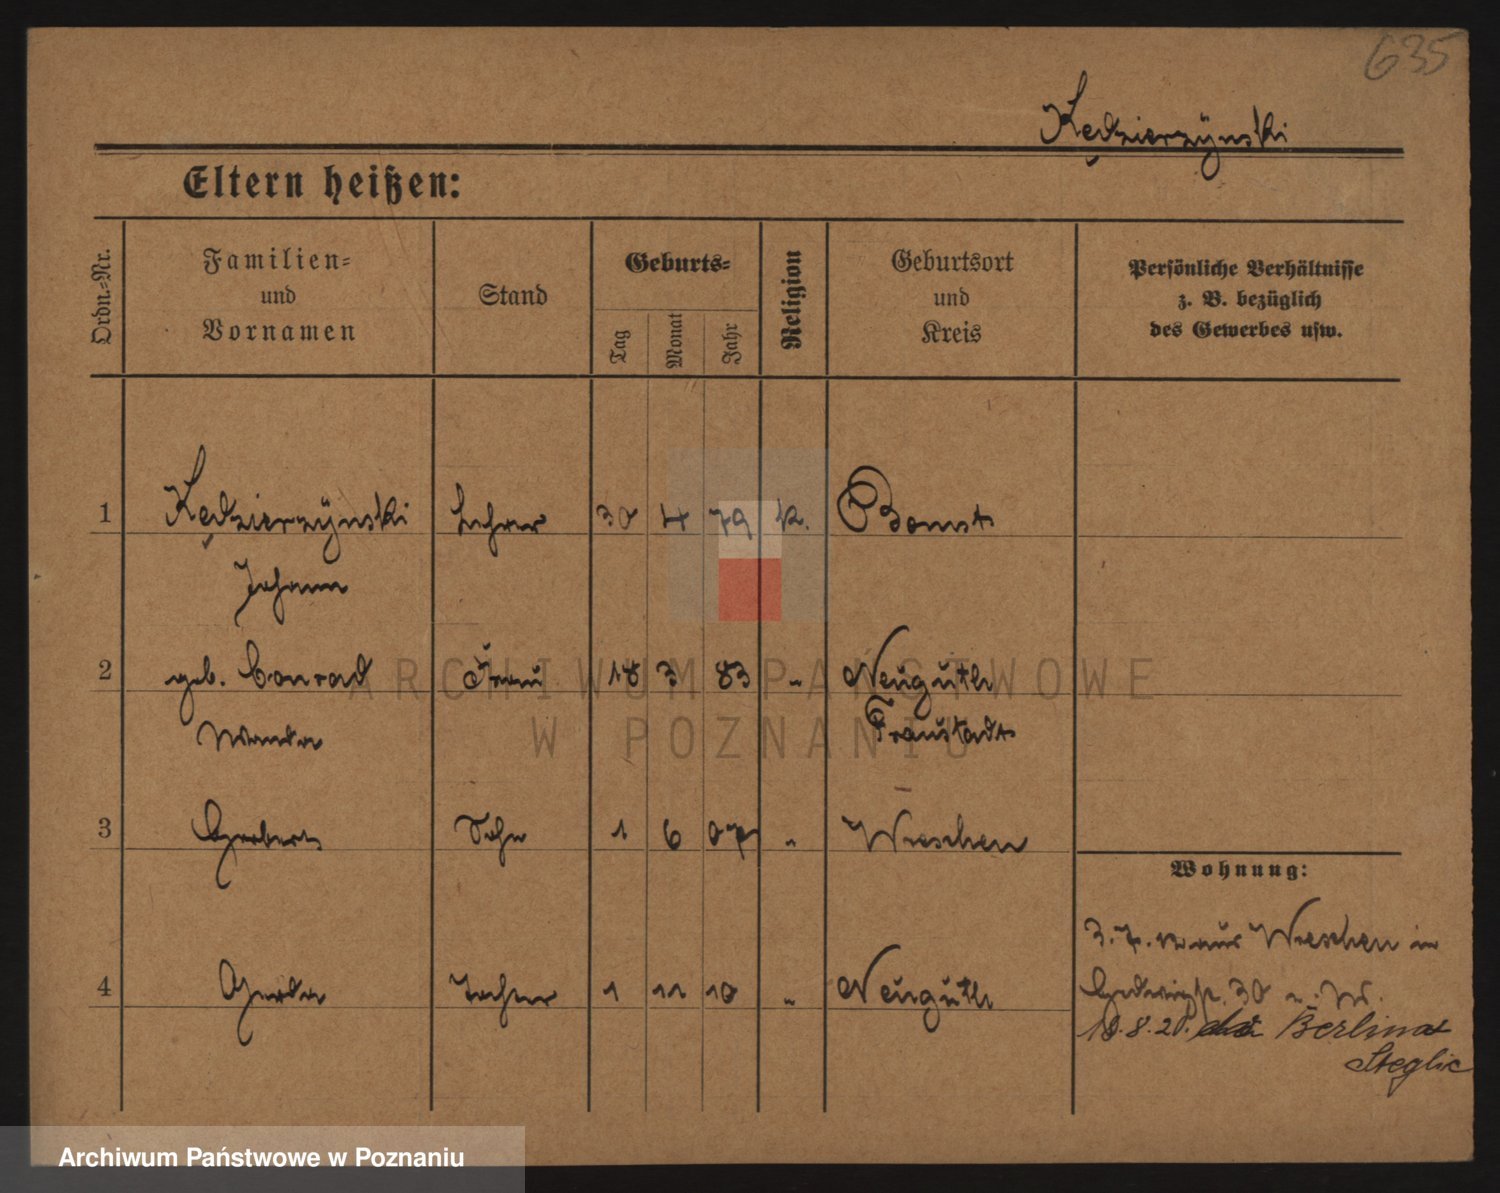 635
Kędzierzÿnski
Eltern heißen:
Ordn.-Nr.
Familien-
und
Vornamen
Stand
Geburts-
Tag
Monat
Jahr
Religion
Geburtsort
und
Kreis
Persönliche Verhältnisse
z. B. bezüglich
des Gewerbes usw.
1 Kędzierzÿnski Lehrer 30 4 79 k. Bomst
Johann
2 geb. Conrad Frau 18 3 83 " Neuguth
Wanda Fraustadt
3 Herbert Sohn 1 6 07 " Wreschen
Wohnung:
3.7. aus Wreschen in
4 Gerda Tochter 1 11 10 " Neuguth
Hedwigstr. 30
18.8.21. Berlin
Steglic
ARCHIWUM PAŃSTWOWE
W POZNANIU
Archiwum Państwowe w Poznaniu